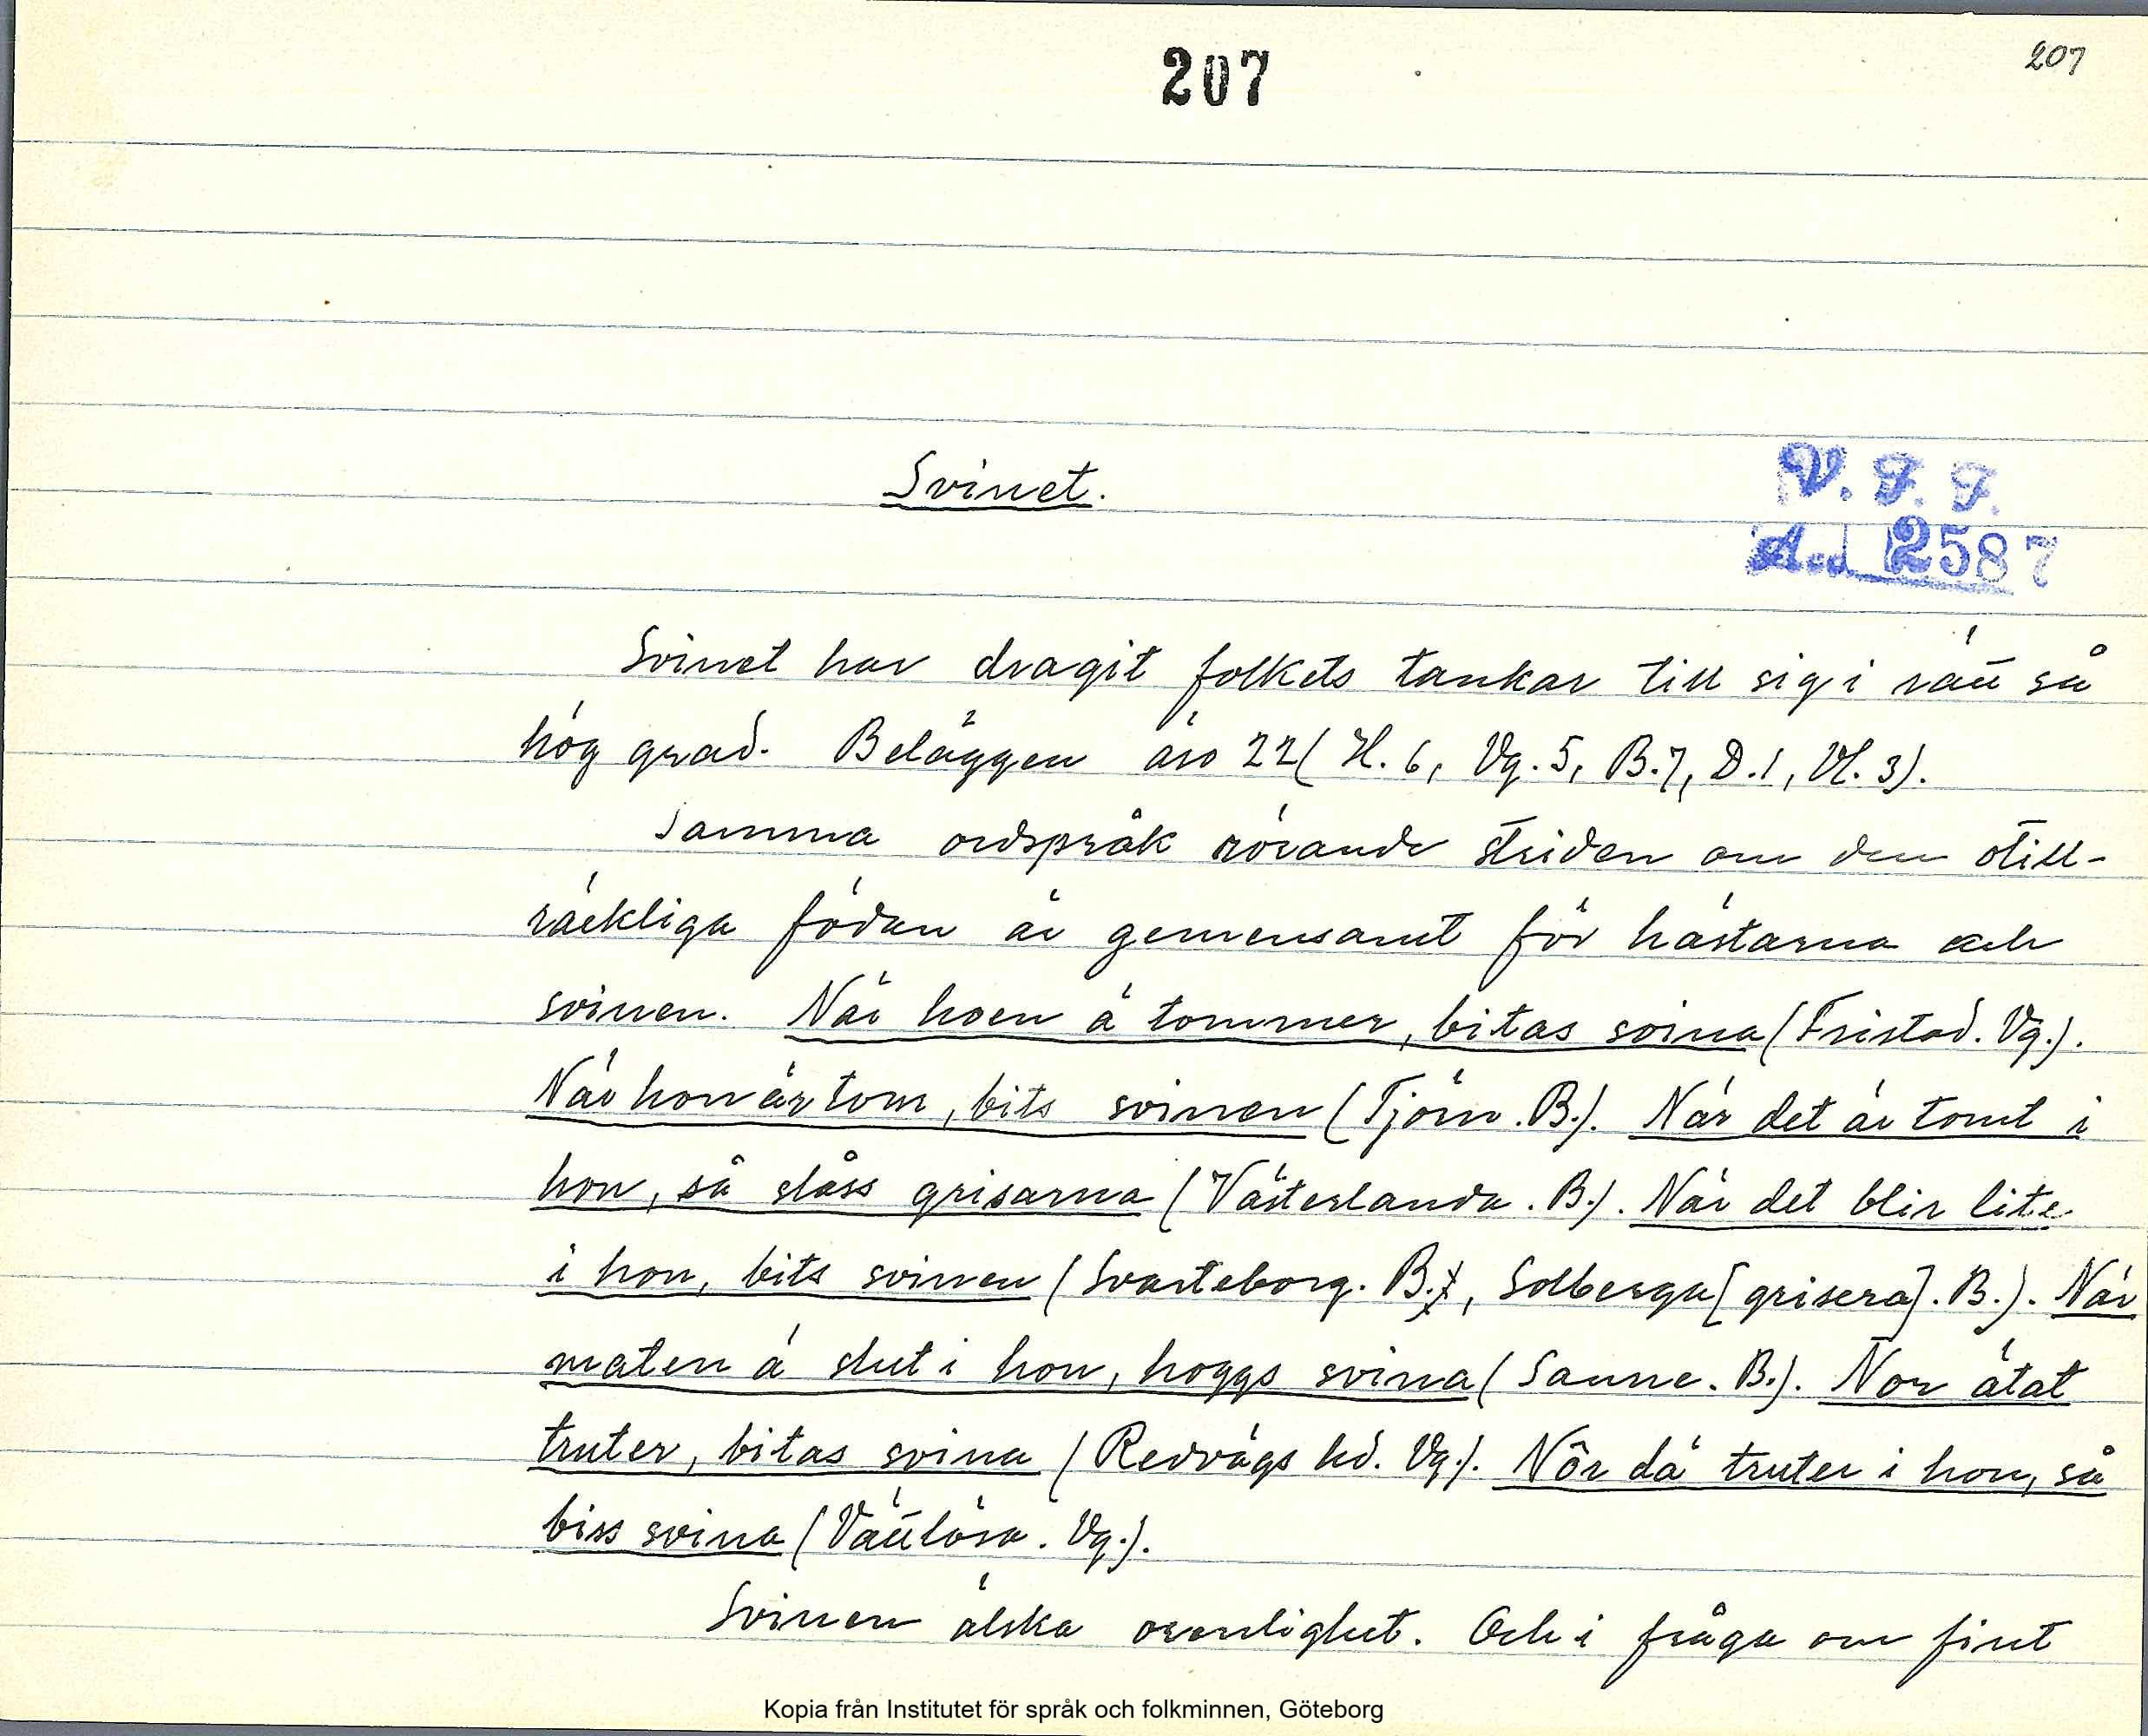 207
207
Svinet.
V. F. F.
Acc 2587
Svinet har dragit folkets tankar till sig i rätt så
hög grad. Beläggen äro 22 (H. 6, Vg. 5, B. 7, D. 1, Vl. 3).
Samma ordspråk rörande striden om den otill-
räckliga födan är gemensamt för hästarna och
svinen. När hoen ä tommer, bitas svina (Fristad. Vg.).
När hon är tom, bits svinen (Tjörn. B.). När det är tomt i
hon, så slåss grisarna (Västerlanda. B.). När det blir lite
i hon, bits svinen (Svarteborg. B., Solberga [grisera]. B.). När
maten ä slut i hon, hoggs svina (Sanne. B.). Nor ätat
truter, bitas svina (Redvägs hd. Vg.). Nôr dä truter i hon, så
biss svina (Vättlösa. Vg.).
Svinen älska orenlighet. Och i fråga om fint
Kopia från Institutet för språk och folkminnen, Göteborg